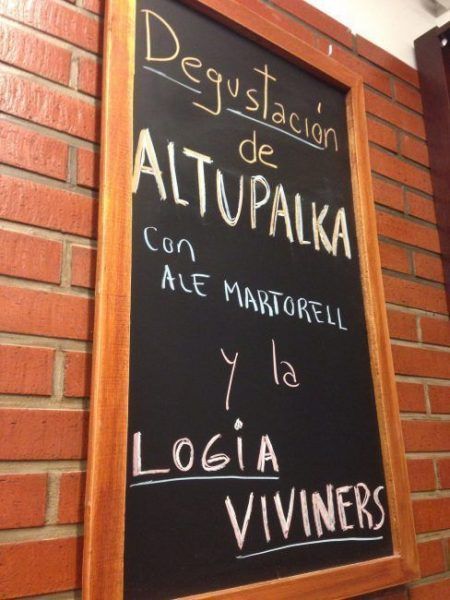 Degustación
de
ALTUPALKA
con
ALE MARTORELL
y la
LOGIA
VIVINERS